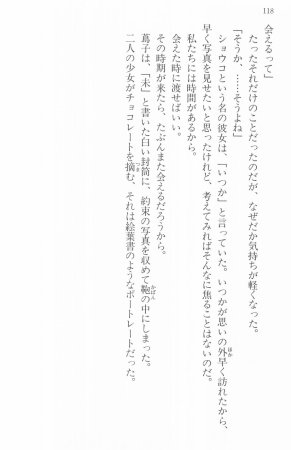 118
会えるって」
たったそれだけのことだったのだが、なぜだか気持ちが軽くなった。
「そうか、……そうよね」
ショウコという名の彼女は、「いつか」と言っていた。いつかが思いの外早く訪れたから、
早く写真を見せたいと思ったけれど、考えてみればそんなに焦ることはないのだ。
私たちには時間があるから。
会えた時に渡せばいい。
その時期が来たら、たぶんまた会えるだろうから。
蔦子は、「未」と書いた白い封筒に、約束の写真を収めて鞄の中にしまった。
二人の少女がチョコレートを摘む、それは絵葉書のようなポートレートだった。